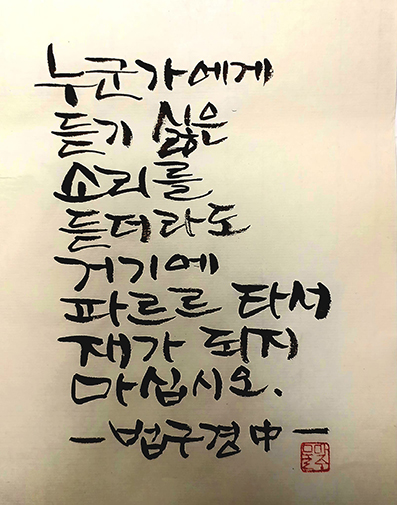 누군가에게
듣기 싫은
소리를
듣더라도
거기에
파르르 타서
재가 되지
마십시오.
— 법구경 中 —